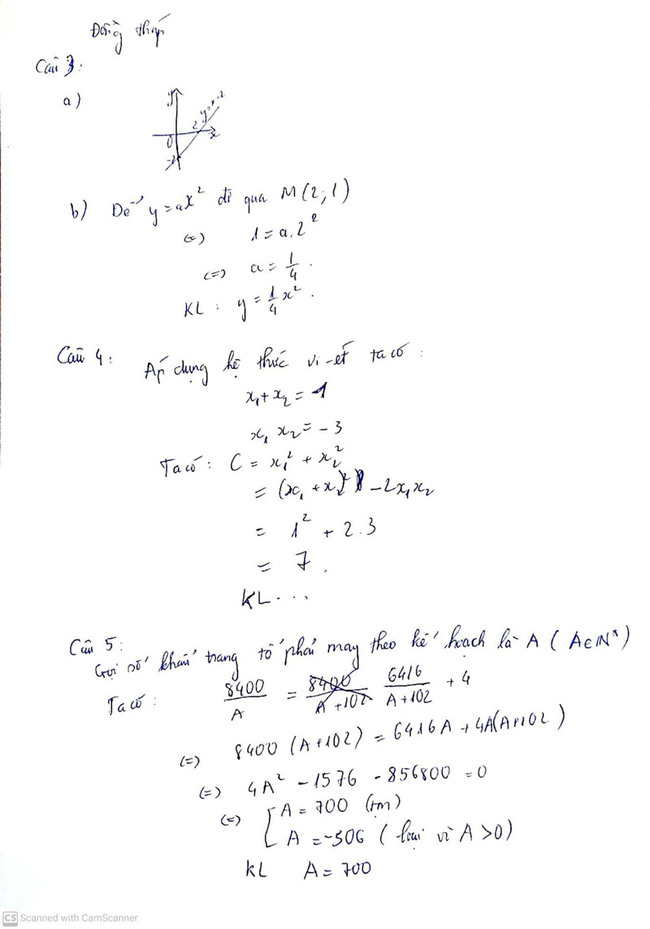 Đồng tháp
Câu 3:
a)
y
2 y=x-2
0 x
-2
b) Để y=ax² đi qua M(2;1)
(=) 1=a.2²
(=) a=1/4.
KL: y=1/4x².
Câu 4: Áp dụng hệ thức vi-ét ta có:
x₁+x₂=1
x₁x₂=-3
Ta có: C=x₁²+x₂²
=(x₁+x₂)²-2x₁x₂
=1²+2.3
=7.
KL...
Câu 5:
Gọi số khẩu trang tổ phải may theo kế hoạch là A (A∈N*)
Ta có: 8400/A = 6416/A+102 +4
(=) 8400(A+102)=6416A+4A(A+102)
(=) 4A²-1576-856800=0
(=) [A=700 (tm)
A=-306 (loại vì A>0)
KL A=700
CS Scanned with CamScanner